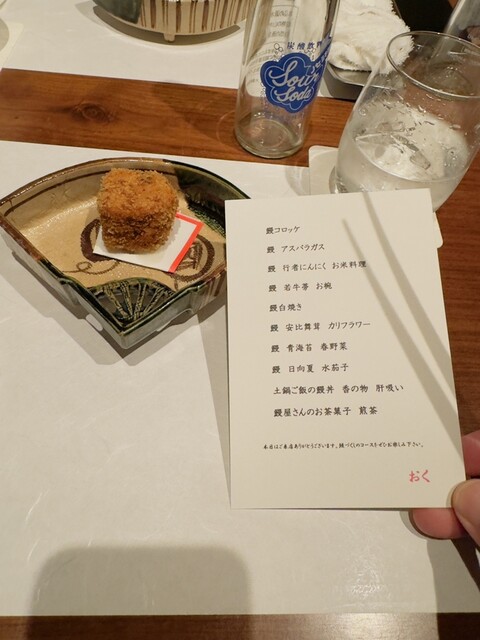 炭酸飲料
Sour
Soda
鰻コロッケ
鰻 アスパラガス
鰻 行者にんにく お米料理
鰻 若牛蒡 お椀
鰻白焼き
鰻 安比舞茸 カリフラワー
鰻 青海苔 春野菜
鰻 日向夏 水茄子
土鍋ご飯の鰻丼 香の物 肝吸い
鰻屋さんのお茶菓子 煎茶
本日はご来店ありがとうございます。鰻づくしのコースをぜひお楽しみ下さい。
おく